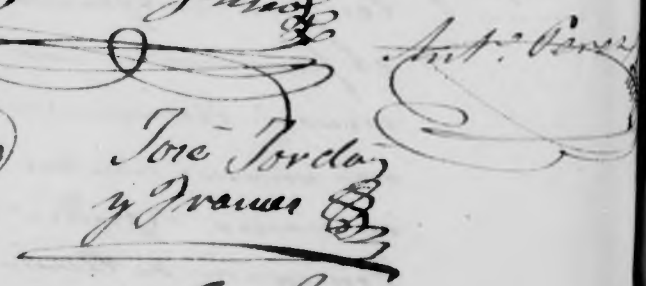 Antº. Perez
José Jordá
y Frances